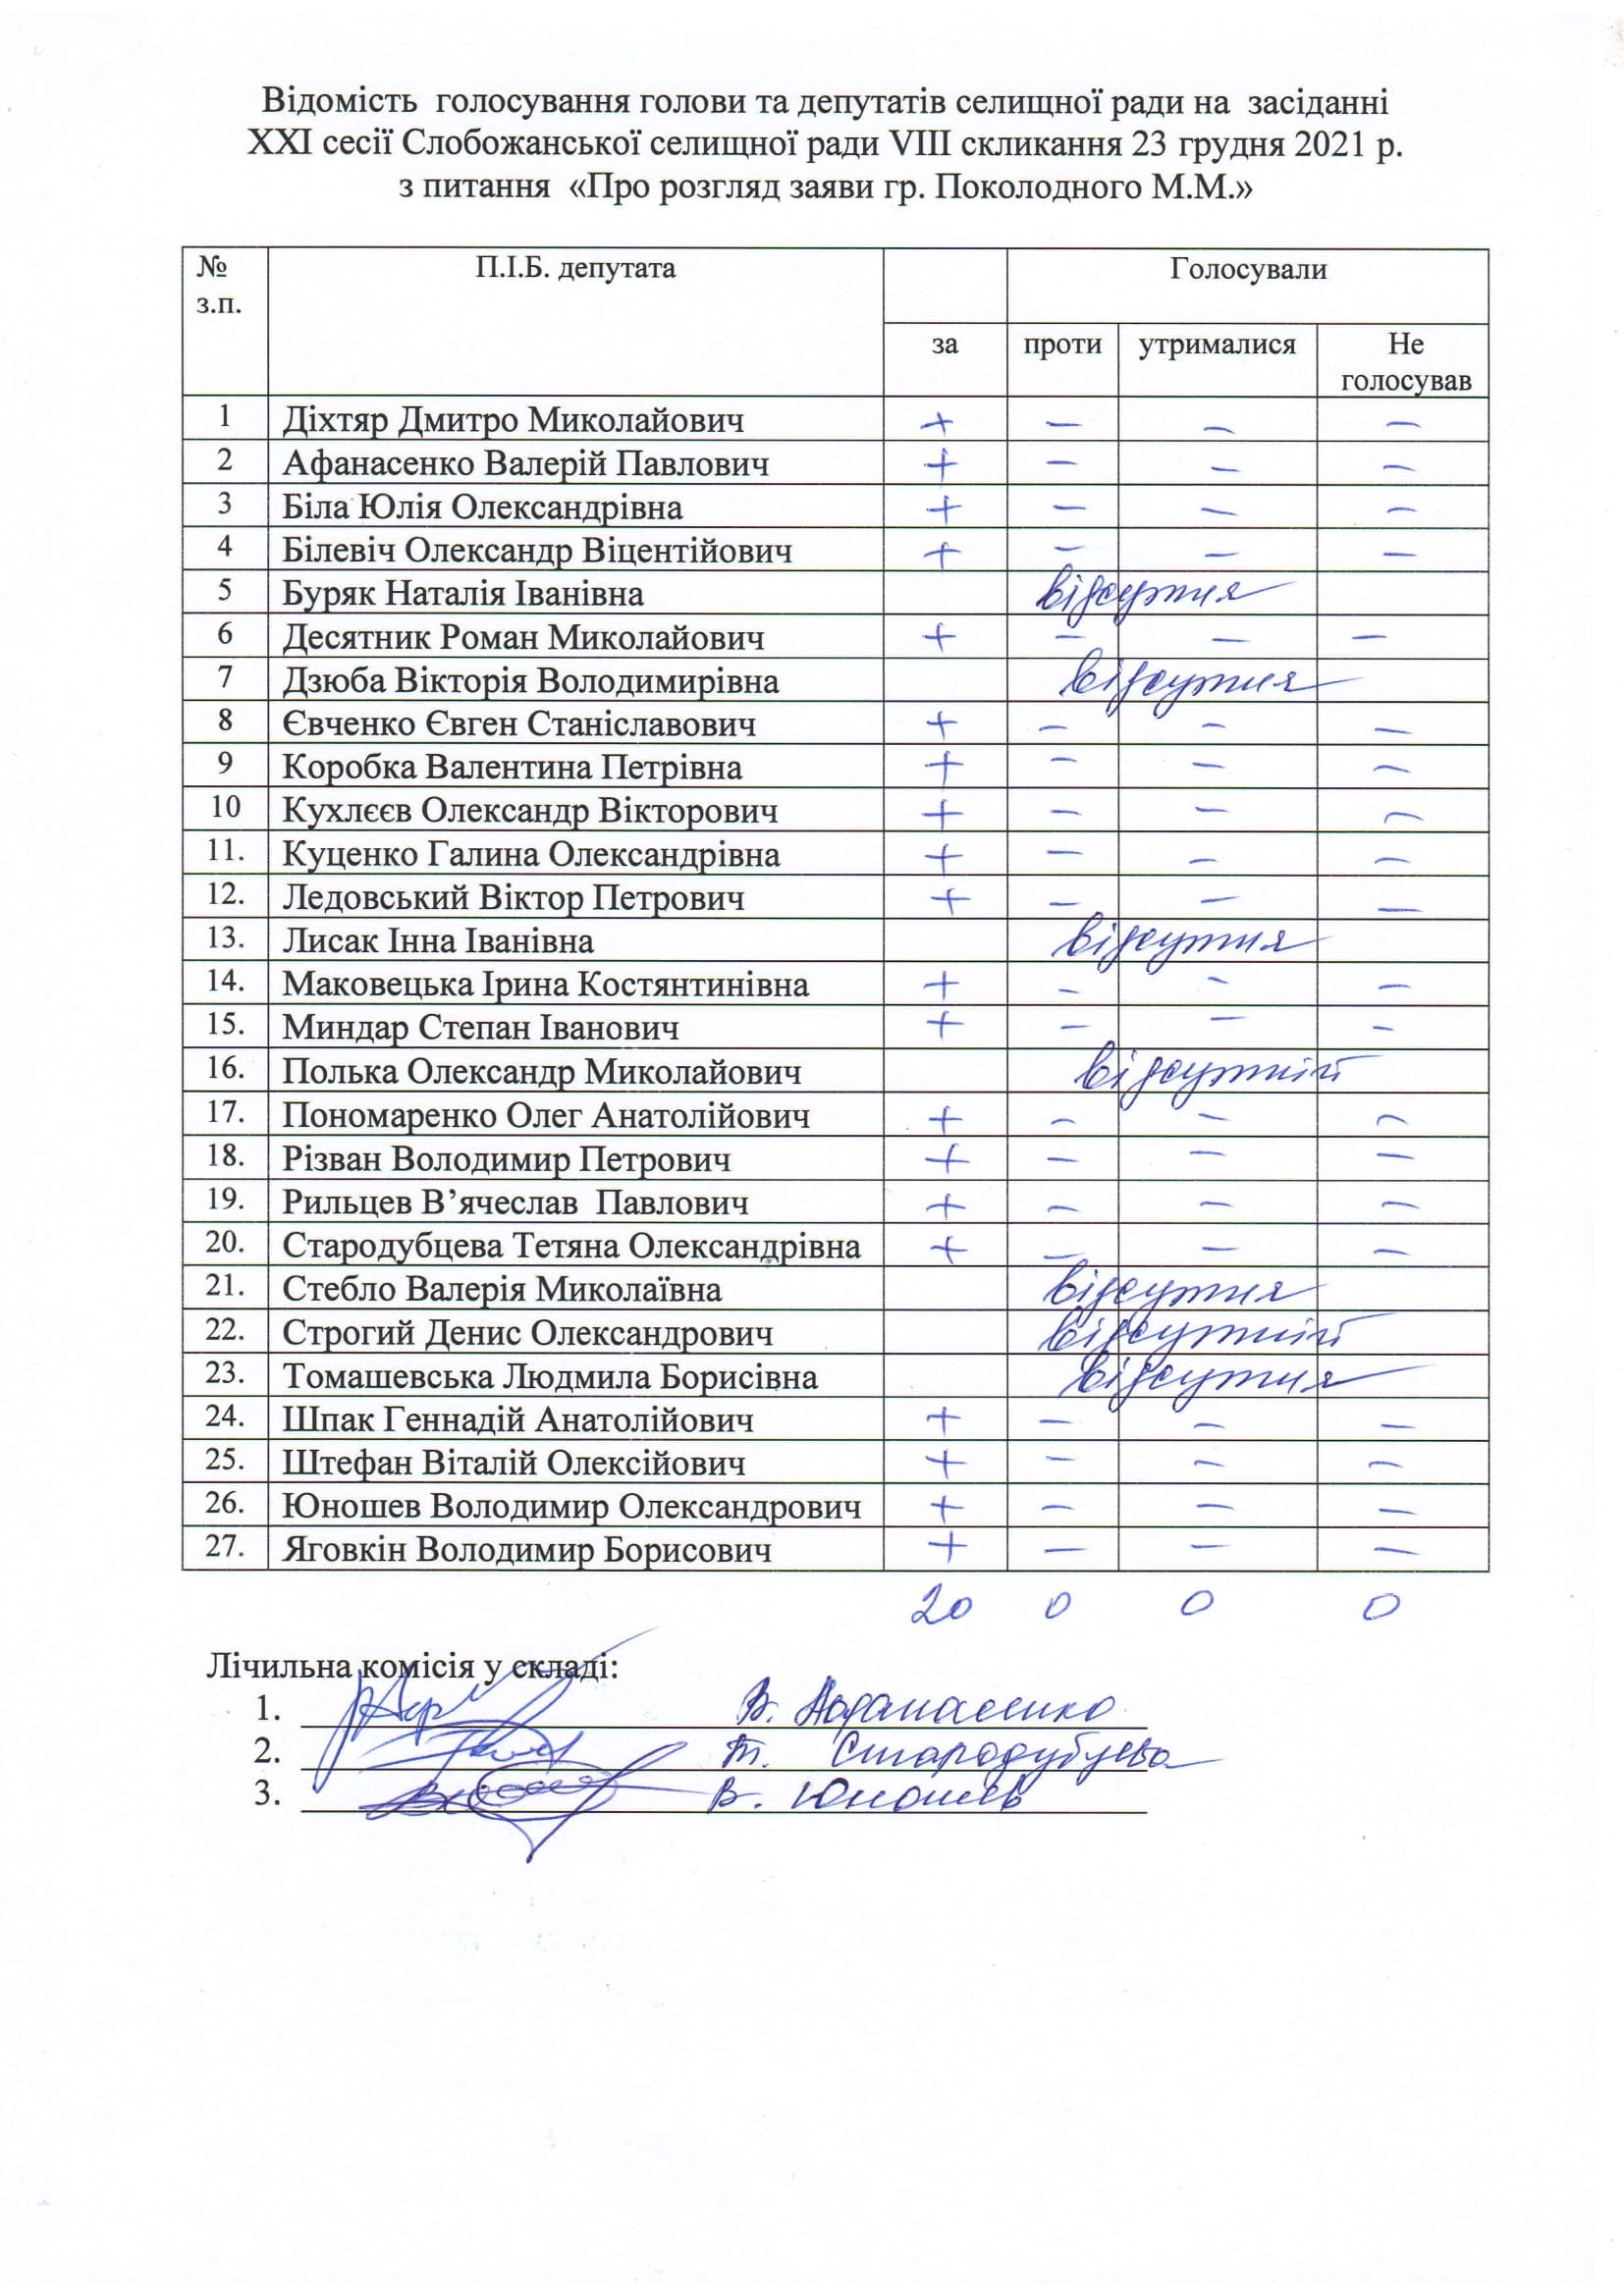 Відомість голосування голови та депутатів селищної ради на засіданні
XXI сесії Слобожанської селищної ради VIII скликання 23 грудня 2021 р.
з питання «Про розгляд заяви гр. Поколодного М.М.»
№ з.п. П.І.Б. депутата Голосували
за проти утрималися Не голосував
1 Діхтяр Дмитро Миколайович + – – –
2 Афанасенко Валерій Павлович + – – –
3 Біла Юлія Олександрівна + – – –
4 Білевіч Олександр Віцентійович + – – –
5 Буряк Наталія Іванівна відсутня
6 Десятник Роман Миколайович + – – –
7 Дзюба Вікторія Володимирівна відсутня
8 Євченко Євген Станіславович + – – –
9 Коробка Валентина Петрівна + – – –
10 Кухлєєв Олександр Вікторович + – – –
11. Куценко Галина Олександрівна + – – –
12. Ледовський Віктор Петрович + – – –
13. Лисак Інна Іванівна відсутня
14. Маковецька Ірина Костянтинівна + – – –
15. Миндар Степан Іванович + – – –
16. Полька Олександр Миколайович відсутній
17. Пономаренко Олег Анатолійович + – – –
18. Різван Володимир Петрович + – – –
19. Рильцев В’ячеслав Павлович + – – –
20. Стародубцева Тетяна Олександрівна + – – –
21. Стебло Валерія Миколаївна відсутня
22. Строгий Денис Олександрович відсутній
23. Томашевська Людмила Борисівна відсутня
24. Шпак Геннадій Анатолійович + – – –
25. Штефан Віталій Олексійович + – – –
26. Юношев Володимир Олександрович + – – –
27. Яговкін Володимир Борисович + – – –
20 0 0 0
Лічильна комісія у складі:
1. В. Афанасенко
2. Т. Стародубцева
3. В. Юношев